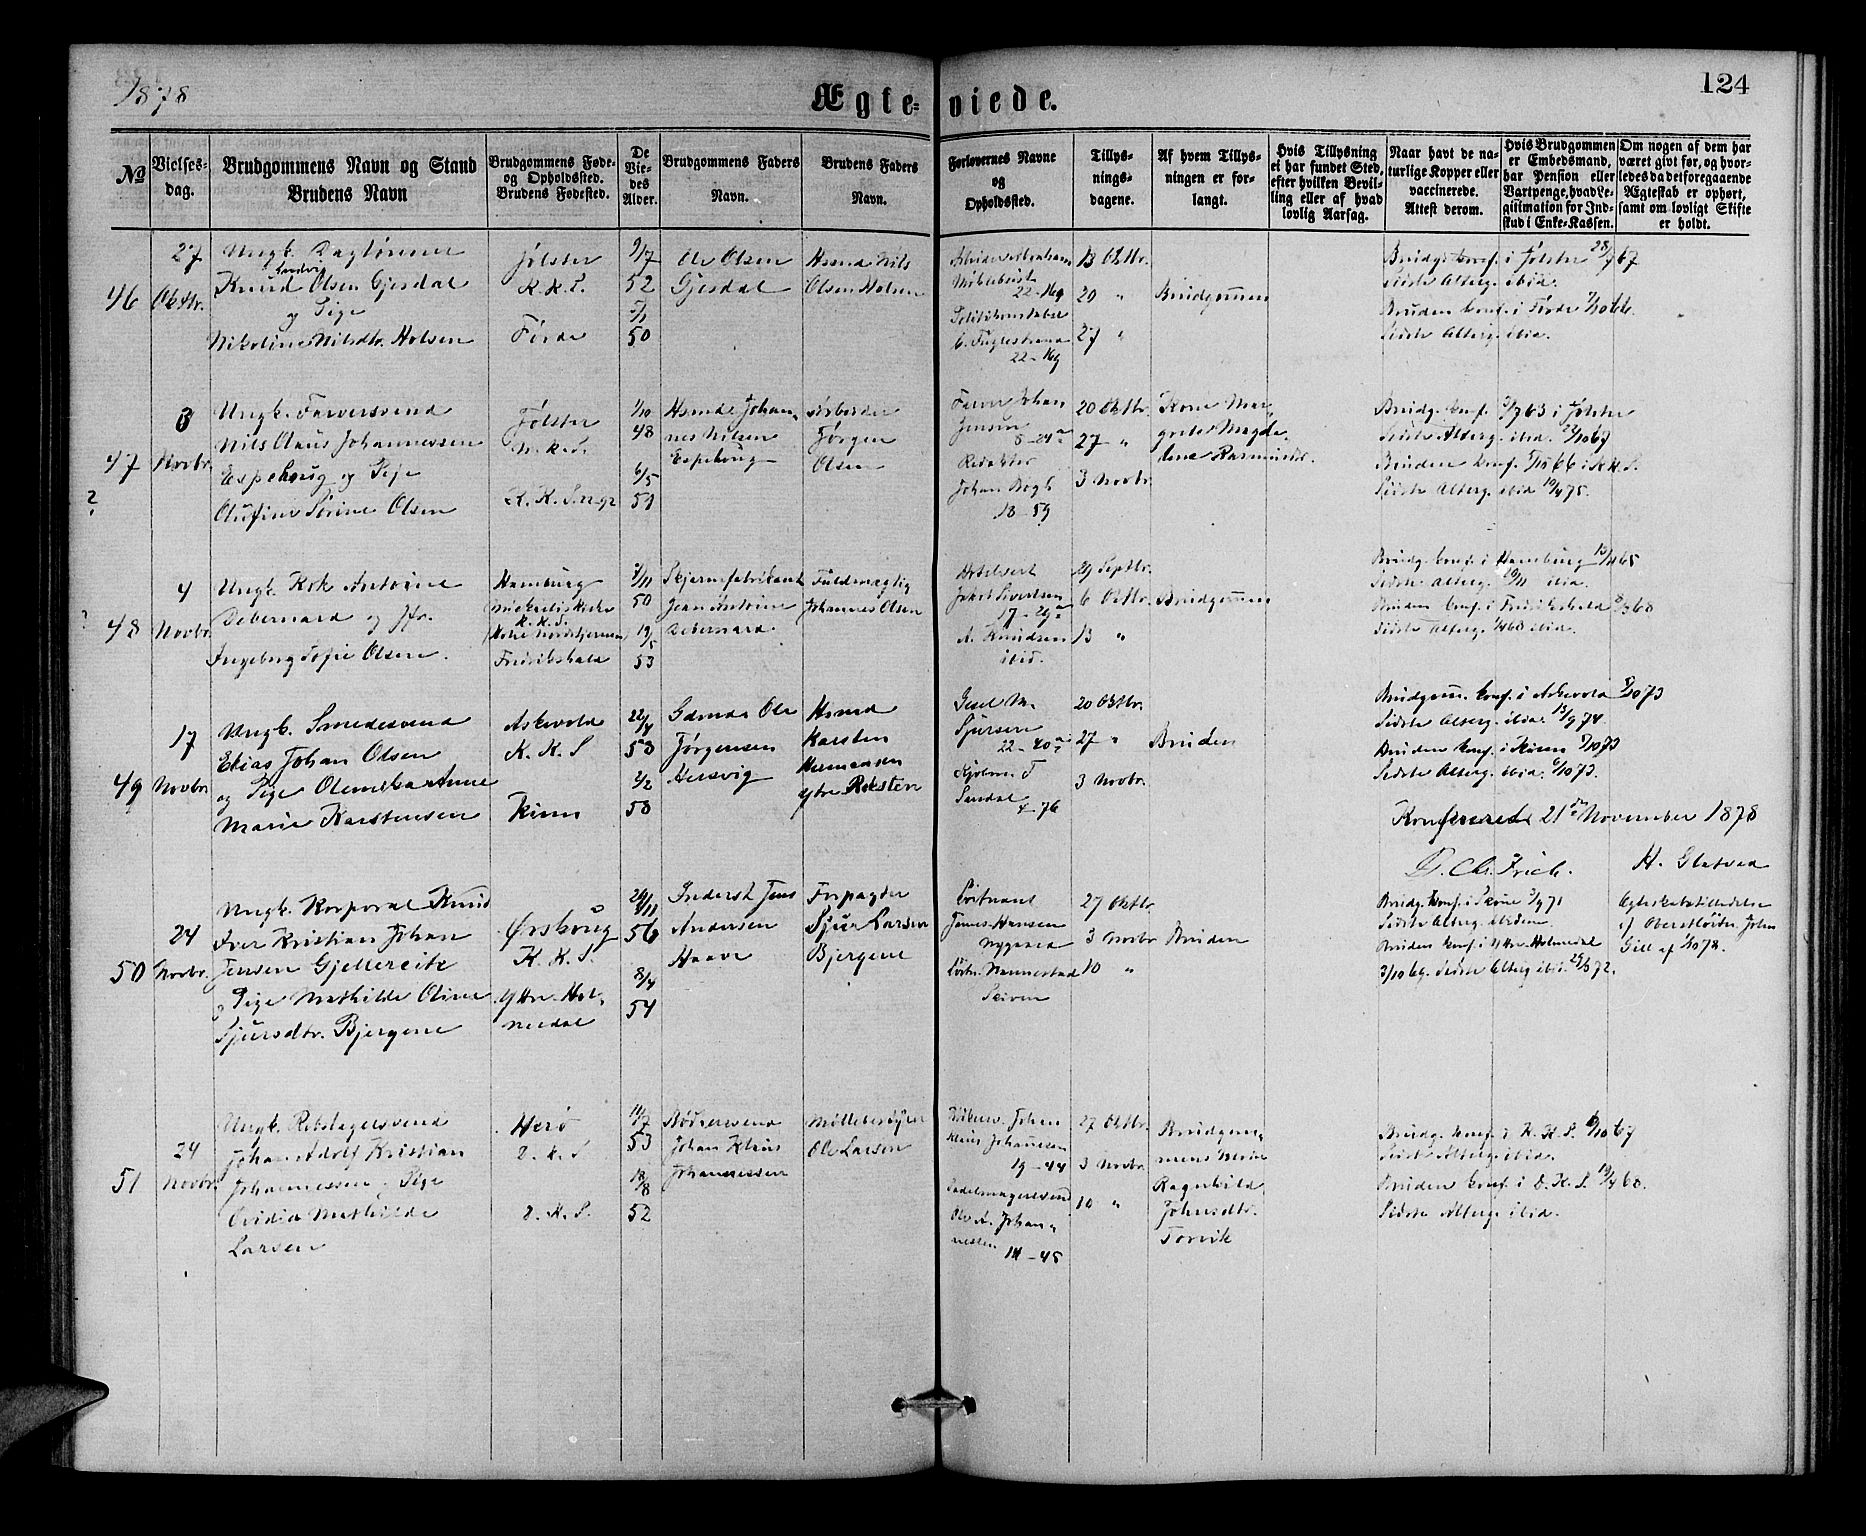 1878
Ægte-viede.
124
No
Vielses-
dag.
Brudgommens Navn og Stand
Brudens Navn
Brudgommens Føde-
og Opholdssted.
Brudens Fødested.
De
Vie-
des
Alder.
Brudgommens Faders
Navn.
Brudens Faders
Navn.
Forlovernes Navne
og
Opholdssted.
Tillys-
nings-
dagene.
Af hvem Tillys-
ningen er for-
langt.
Hvis Tillysning
ei har fundet Sted,
efter hvilken Bevil-
ling eller af hvad
lovlig Aarsag.
Naar havt de na-
turlige Kopper eller
vaccinerede.
Attest derom.
Hvis Brudgommen
er Embedsmand,
har Pension eller
Vartpenge, hvad Le-
gitimation for Ind-
skud i Enke-Kassen.
Om nogen af dem har
været gift før, og hvor-
ledes da det foregaaende
Ægteskab er ophørt,
samt om lovligt Skifte
er holdt.
46
27
Oktbr.
Ungk. Dagtønner
Knud Olsen Gjesdal
og Pige
Nikoline Nilsdtr. Holsen
Jølster
K. K. S.
Førde
9/7
52
5/1
50
Ole Olsen
Gjesdal
Hsmd Nils
Olsen Holsen
22-16g
Politikonstabel
C. Fuglestrand
22-16g
13 Oktbr.
20 "
27 "
Brudgommen
Brudg. konf. i Jølster 28/7 67
Sidste Alterg. ibid.
Bruden konf. i Førde 7/10 66.
Sidste Alterg. ibid.
47
?
3
Novbr.
Ungk. Farversvend
Nils Olaus Johannessen
Espehoug og Pige
Olufine Sørine Olsen
Jølster
N. K. S.
K. K. S.
1/10
48
6/5
51
Hsmd Johan-
nes Nilsen
Espehoug
Arbeider
Jørgen
Olsen
Farver Johan
Jensen
8-24a
Redaktør
Johan Bøgh
18-59
20 Oktbr.
27 "
3 Novbr.
Kone Mar-
grete Magda-
lena Rasmusdtr.
Brudg. konf. 3/7 63 i Jølster
Sidste Alterg. ibid. 27/10 67
Bruden konf. 7/10 66 i K. K. S.
Sidste Alterg. ibid 19/4 75.
48
?
4
Novbr.
Ungk. Kok Antoine
Debernard og Fr.
Ingeborg Sofie Olsen.
Hamburg
Michaelis Kirke
K. K. S.
Fredrikshald
7/11
50
19/5
53
Skjermfabrikant
Jean Antoine
Debernard.
Fuldmægtig
Johannes Olsen
Hotelvert
Jakob Sivertsen
17-29a
A. Knudsen
ibid.
29 Septbr.
6 Oktbr.
13 "
Brudgommen
Brudg. konf. i Hamburg 13/4 65
Sidste Alterg. ibid.
Bruden konf. i Fredrikshald 68
Sidste Alterg. ibid.
49
17
Novbr.
Ungk. Smedesvend
Elias Johan Olsen
og Pige Olenelka Anne
Marie Karstensen
Askevold
K. K. S
Kinn
22/4
53
2/2
58
Gdmd Ole
Jørgensen
Hersvig
Hsmd
Karsten
Hermansen
Ytre Reksten
Gesel M.
Sjursen
22-40a
Sandal
4-76
20 Oktbr.
27 "
3 Novbr.
Bruden
Brudgom. konf. i Askevold 5/10 73
Sidste Alterg. ibid. 13/9 74.
Bruden konf. i Kinn 5/10 73
Sidste Alterg. ibid. 6/10 73.
Konfereret 21de November 1878
D. Chr. Irich. H. Gletved
50
24
Novbr.
Ungk. Korporal Knud
Iver Kristian Johan
Jensen Gjellereite
og Pige Mathilde Oline
Sjursdtr. Bjergene
Ørskoug
K. K. S.
Ytre Hol-
medal
56
8/4
54
Inderst Jens
Andersen
Haave
Forpagter
Sjur Larsen
Bjergene
Løitnant
James Hansen
Nygaard
Løitn. Mannestad
27 Oktbr.
3 Novbr.
10 "
Bruden
Sidste Alterg. ibidem
Bruden konf. i Ytre Holmedal
3/10 69. Sidste Alterg. ibid. 29/9 72.
Ægteskabstilladelse
af Oberstløit. John
Gill af 7/10 78.
51
24
Novbr.
Ungk. Rebslagersvend
Johan Adolf Kristian
Johannessen, Pige
Ovidia Mathilde
Larsen
Herø
D. K. S
D. K. S.
11/7
53
18/8
52
Bødkersvend
Johan Klaus
Johannessen
Møllebestyrer
Ole Larsen
Johan
Klaus Johannesen
19-44
Sadelmagersvend
Ole A. Johan-
nesen
14-45
27 Oktbr.
3 Novbr.
10 "
Brudgom-
mens Moder
Ragnhild
Johnsdtr.
Torvik
Brudg. konf. i K. K. S. 6/10 67
Sidste Alterg. ibid.
Bruden konf. i D. K. S. 19/4 68.
Sidste Alterg. ibid.